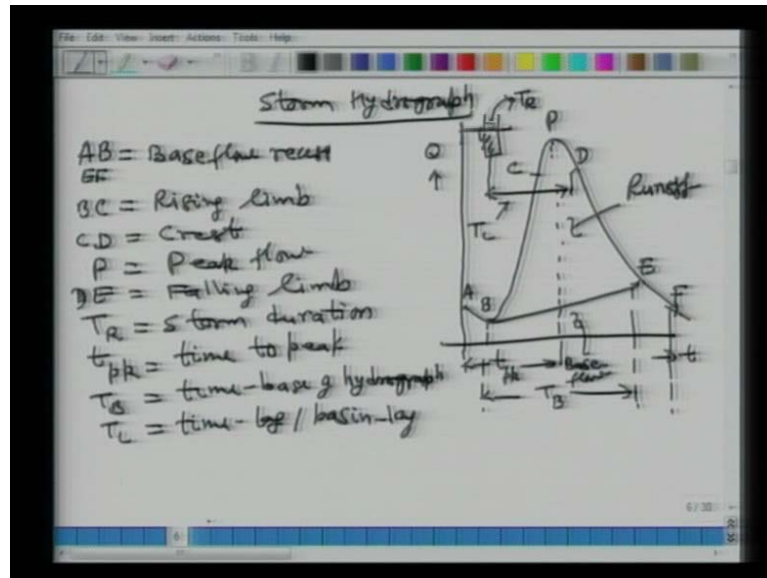 File Edit View Insert Actions Tools Help
Storm Hydrograph
AB = Baseflow
EF
BC = Rising limb
CD = Crest
P = Peak flow
DE = Falling limb
T_R = Storm duration
t_pk = time to peak
T_B = time-base of hydrograph
T_L = time-lag / basin-lag
T_R
P
Q
C
D
Runoff
T_L
A
B
E
F
t_pk
Base flow
t
T_B
6/30
6